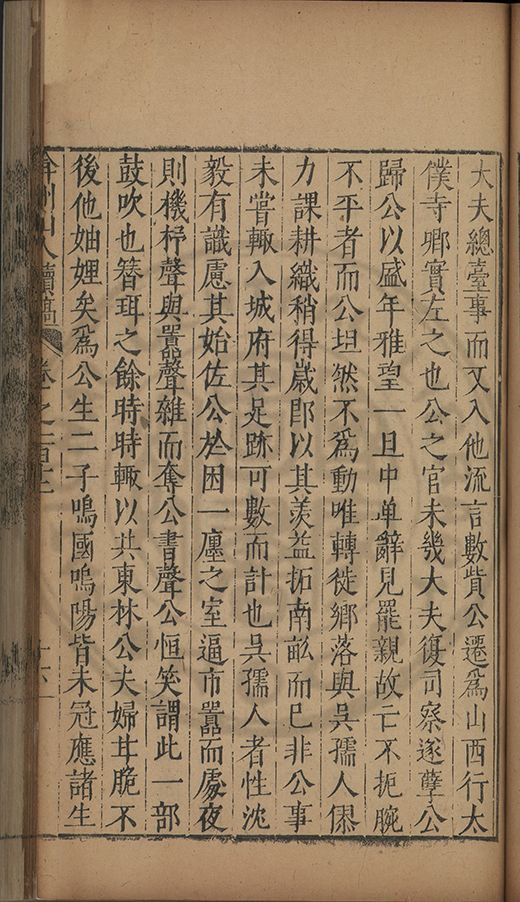 大夫總臺事而又入他流言數貲公遷爲山西行太
僕寺卿實左之也公之官未幾大夫復司察遂孽公
歸公以盛年雅望一旦中单辭見罷親故亡不扼腕
不平者而公坦然不爲動唯轉徙鄉落與吳孺人倮
力課耕織稍得歲即以其羡益拓南畝而已非公事
未嘗輙入城府其足跡可數而計也吳孺人者性沈
毅有識慮其始佐公於困一廛之室逼市囂而處夜
則機杼聲與囂聲雜而奪公書聲公恒笑謂此一部
鼓吹也簮珥之餘時時輙以共東林公夫婦甘脆不
後他妯娌矣爲公生二子鳴國鳴陽皆未冠應諸生
弇州山人續稿 卷之一百